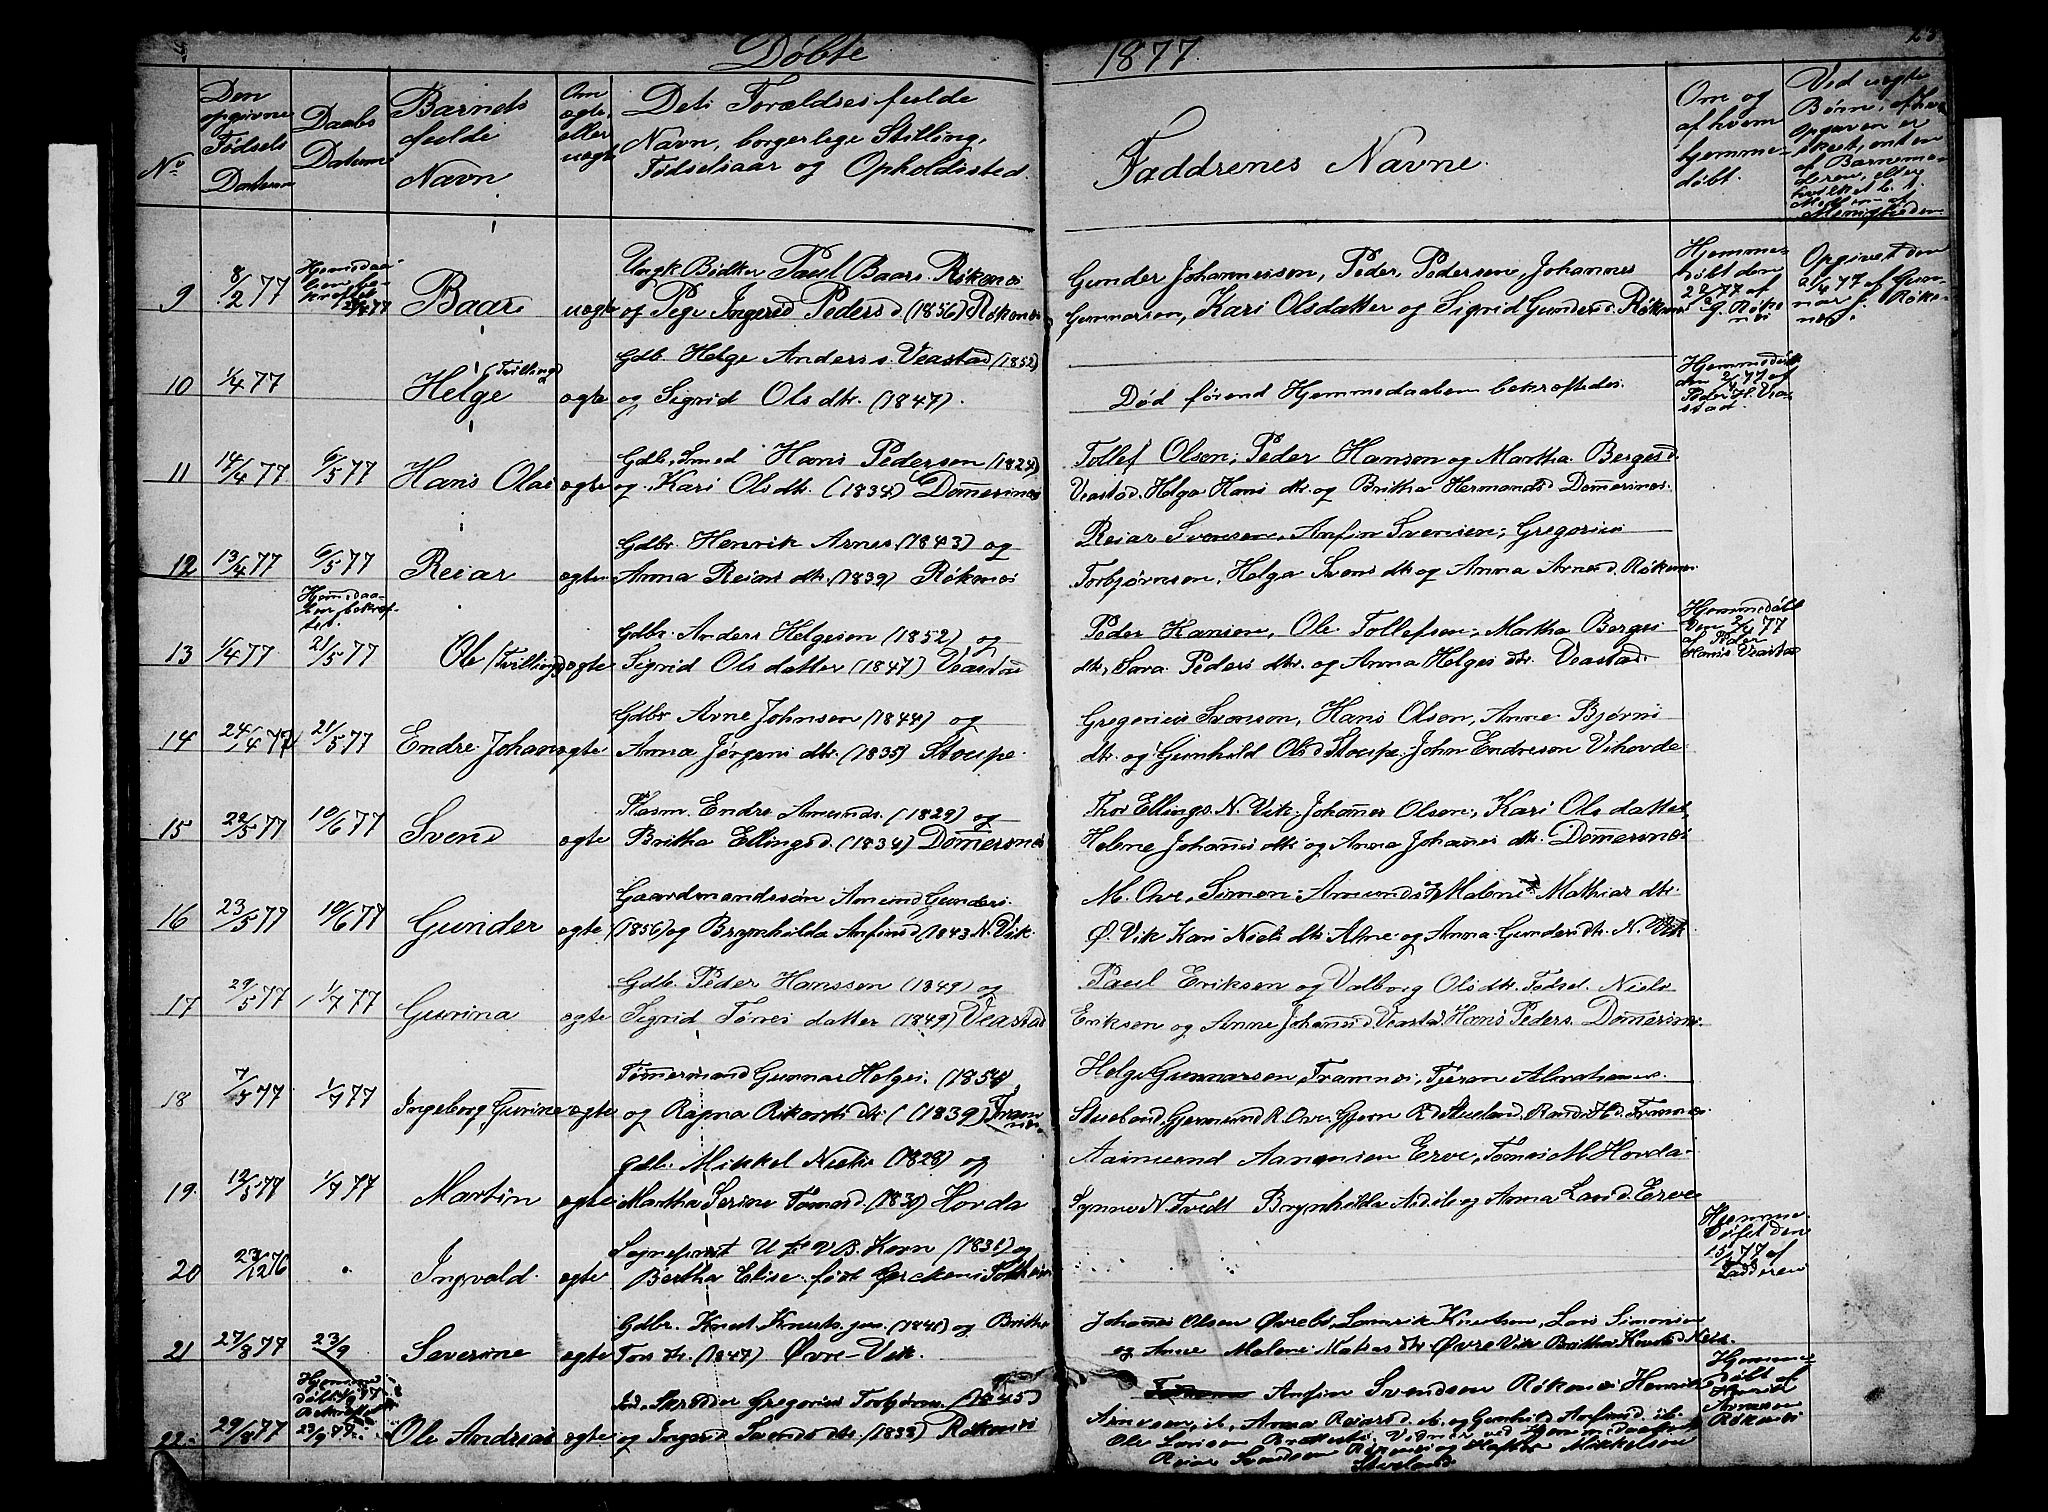 Døbte 1877.
No
Den opgivne Fødsels Datum
Daabs Datum
Barnets fulde Navn
Om ægte eller uægte
Dets Forældres fulde Navn, borgerlige Stilling, Fødselsaar og Opholdssted
Faddrenes Navne.
Om og af hvem hjemmedøbt.
Ved uægte Børn, af hvem Opgaven er skeet, enten af Barnemoderen, eller
9 8/2 77 Baar uægte
Ungk. Bødker Paul Baars. Røkenes
og Pige Ingered Pedersd. (1856) Røkenes
Gunder Johannesson, Peder Pedersen, Johannes
Gunnarson, Kari Olsdatter og Sigrid Gundersd. Røkenes
Hjemmedøbt den
Opgivet den
10 1/4 77 Helge (Tvilling) ægte
Gdb. Helge Anders s. Veastad (1852)
og Sigrid Ols dtr. (1847).
Død førend Hjemmedaaben bekræftedes.
Hjemmedøbt den 2/4 77 af Peder H. Veastad.
11 14/4 77 6/5 77 Hans Olai ægte
Gdb., Smed Hans Pedersen (1824)
og Kari Ols dtr. (1834) Dommersnes
Tollef Olsen, Peder Hanson og Martha Bergesd.
Veastad. Helga Hans dtr. og Britha Hermandsd. Dommersnes.
12 13/4 77 6/5 77 Reiar ægte
Gdbr. Henrik Arnes. (1843) og
Anna Reiars dtr. (1839) Røkenes
Reiar Svensen, Anfin Svensen, Gregorius
Torbjørnsen, Helga Svens dtr. og Anna Arnesd. Røkenes
13 1/4 77 21/5 77 Ole (Tvilling) ægte
Gdbr. Anders Helgeson (1852) og
Sigrid Ols datter (1847) Veastad
Peder Hansen, Ole Tollefsen, Martha Berges
dtr., Sara Peders dtr. og Anna Helges dtr. Veastad.
Hjemmedøbt den 2/4 77 af Peder Hans. Veastad
14 24/4 77 21/5 77 Endre Johan ægte
Gdbr. Arne Johnsen (1844) og
Anna Jørgens dtr. (1835) Stoupe.
Gregorius Svenson, Hans Olsen, Anne Bjørns
dtr. og Gunhild Olsd. Stoupe. John Endreson Vihovde.
15 22/5 77 10/6 77 Svend ægte
Plasm. Endre Amunds. (1829) og
Britha Ellingsd. (1834) Dommersnes
Thor Ellings. N. Vik. Johannes Olsen, Kari Ols datter,
Helene Johannes dtr. og Anna Johannes dtr. Dommersnes
16 23/5 77 10/6 77 Gunder ægte
Gaardmandssøn Amund Gunders.
(1856) og Brynhilda Anfinsd. (1843 N. Vik.
M. Ove, Simon Amunds. og Malene Mathias dtr.
Ø. Vik Kari Niels dtr. Alne og Anna Gunders dtr. N. Vik.
17 29/5 77 1/7 77 Gurina ægte
Gdb. Peder Hanssen (1849) og
Sigrid Tørres datter (1849) Veastad
Paul Eriksen og Valborg Ols dtr. Tedsel. Niels
Eriksen og Anne Johannesd. Veastad. Hans Peders. Dommersnes.
18 7/5 77 1/7 77 Ingeborg Gurine ægte
Tømmermand Gunnar Helges. (1854)
og Ragna Rikords dtr. (1839) Framnes
Helge Gunnarsen Framnes,
19. 12/5 77 1/7 77 Martin ægte
Gdb. Mikkel Niels. (1828) og
Martha Serine Tømasd. (1839) Hovda
Aamund Aanensen Erve, Tomas M. Hovda.
Synne N. Tvedt Brynhilda og Anna Larsd. Erve
20 23/12 76 Ingvald. ægte
Sogneprest U. F. v. B. Korn (1831) og
Bertha Elise født Gerckens
Hjemmedøbt den 15/1 77 af Fadderen
21 27/8 77 23/9 Severine ægte
Gdbr. Knut Knuts. jun. (1841) og Britha
Tors dtr. (1847) Øvre-Vik.
Johannes Olsen Øvrebø, Lamrik Knutsen, Lars Simonsen
og Anne Malene Matias dtr. Øvre Vik Britha Knutsd.
22. 29/8 77 Ole Andreas ægte
Hjemmedøbt 1/9 77 Bekræftet 23/9 77
Ind. Skrædder Gregorius Torbjørns. (1845)
og Ingered Svends dtr. (1838) Røkenes
Anfin Svendsen Røkenes Henrik
Arnesen, ib., Anna Reiarsd. ib. og Gunhild Anfinsd. ib.
Ole Larssen Vidner ved Hjemmedaaben
Reiar Svendsen Røkenes og Haftor Mikkelsen
Stueland
Hjemmedøbt af Henrik Arnesen Røkenes